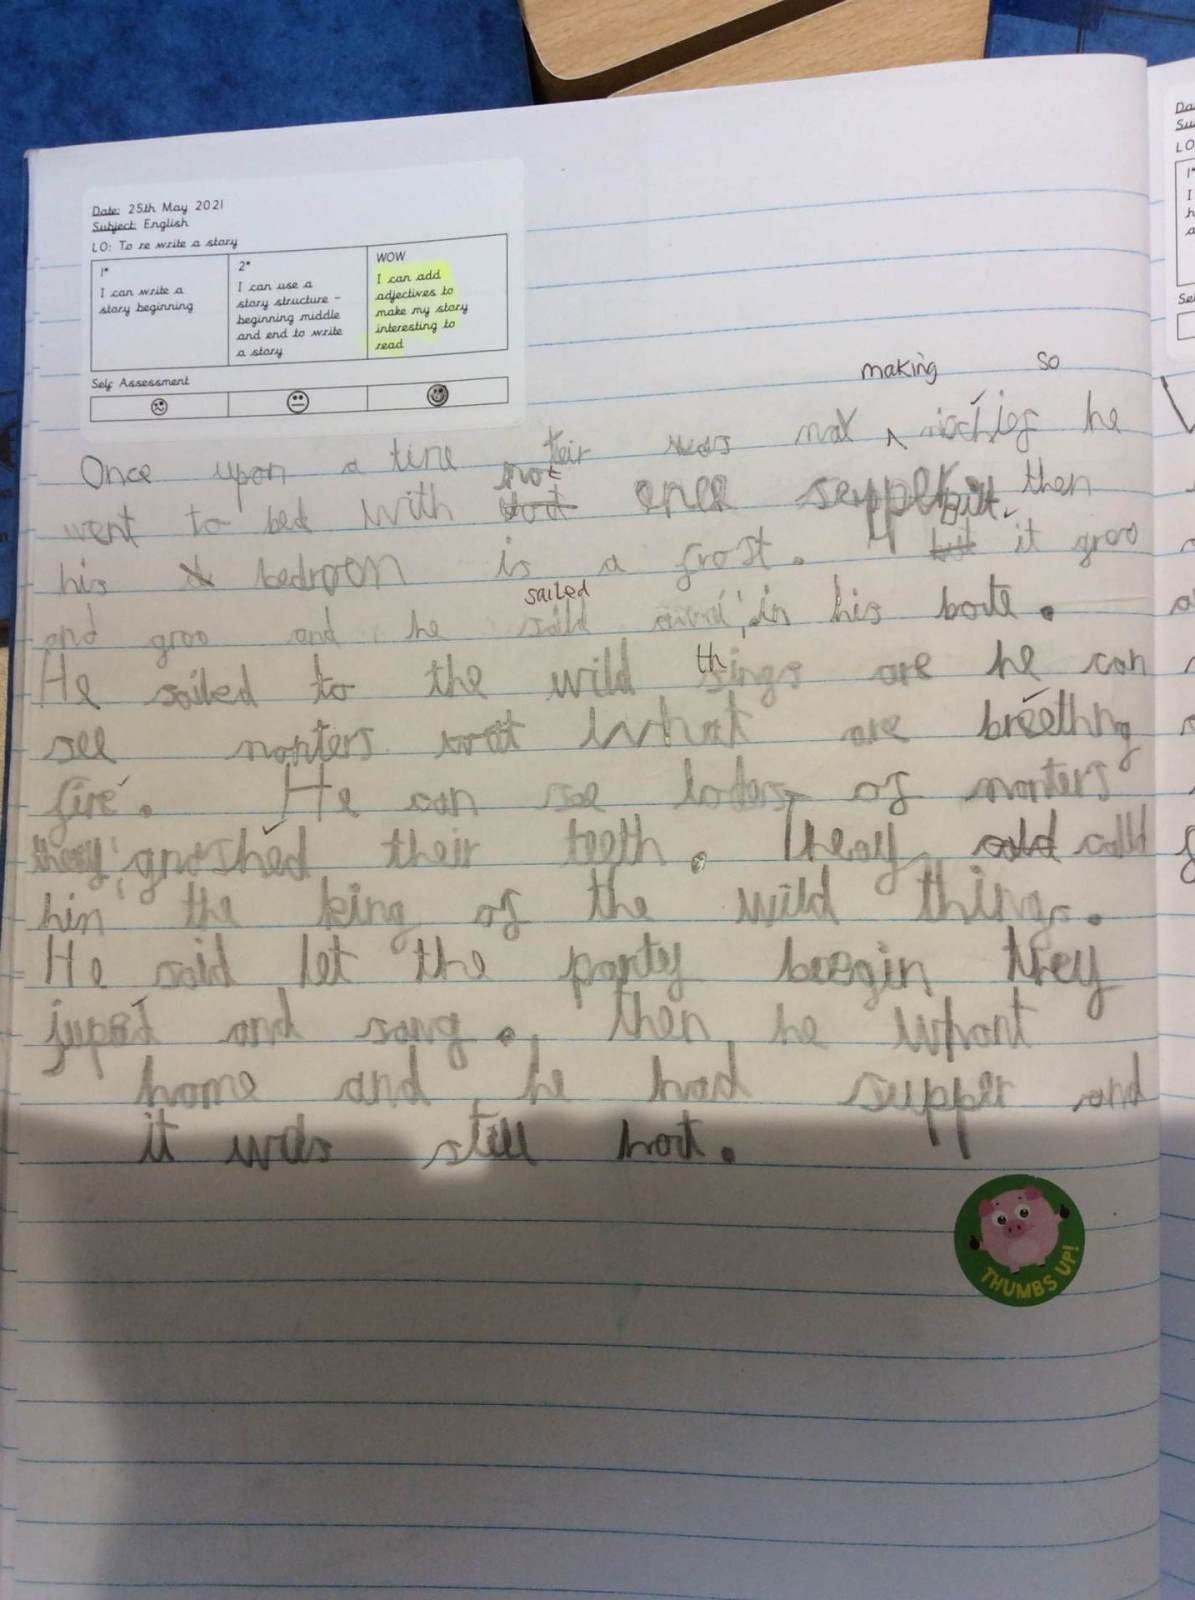 Date: 25th May 2021
Subject: English
LO: To re write a story
1*
I can write a
story beginning
2*
I can use a
story structure -
beginning middle
and end to write
a story
WOW
I can add
adjectives to
make my story
interesting to
read
Self Assessment
making so
Once upon a time teir was max he
went to bed with not enea supper but then
his bedroom is a frost. but it groo
sailed
and groo and he in his bote.
He sailed to the wild things are he can
see monters wot what are breething
fire. He can see loders of monters
they gnoshed their teeth. Theay calld
him the king of the wild things.
He said let the party beegin they
juped and sang. Then he whant
home and he had supper and
it was still hot.
THUMBS UP!
Da
Su
LO